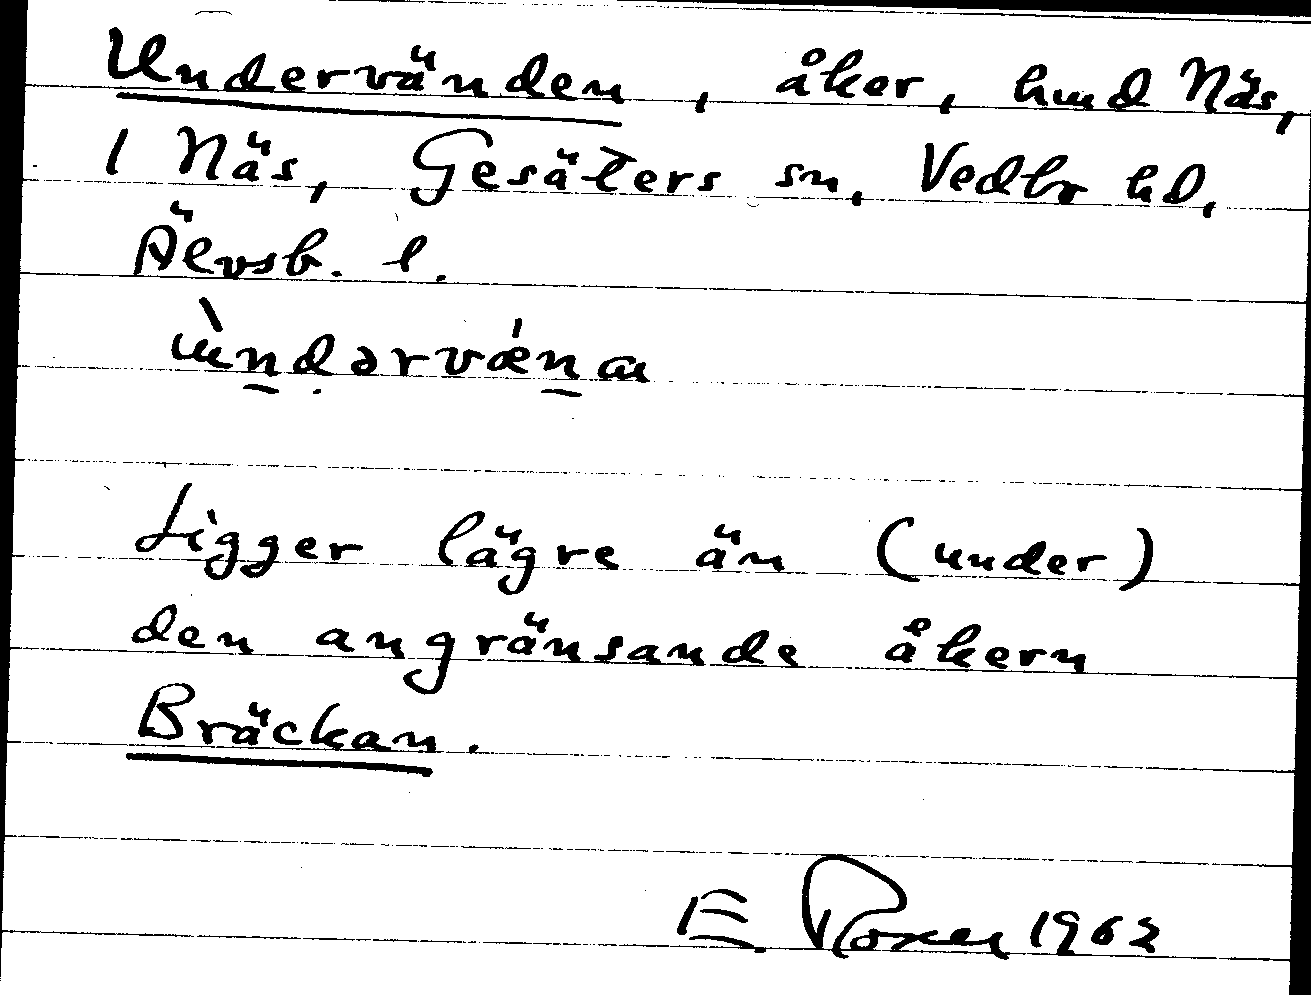 Undervänden, åker, hmd Näs,
1 Näs, Gesäters sn, Vedbo hd,
Älvsb. l.
ùndərvǽna
Ligger lägre än (under)
den angränsande åkern
Bräckan.
E. Roxen 1962